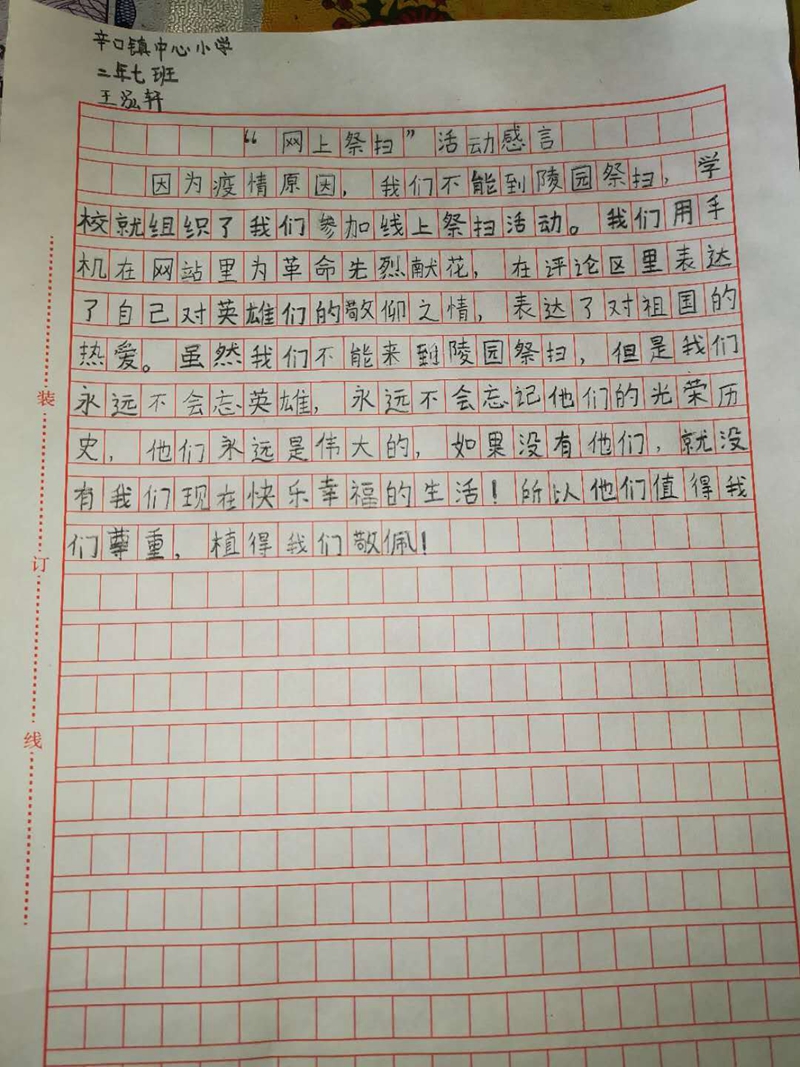 辛口镇中心小学
二年七班
王泓轩
“网上祭扫”活动感言
因为疫情原因，我们不能到陵园祭扫，学
校就组织了我们参加线上祭扫活动。我们用手
机在网站里为革命先烈献花，在评论区里表达
了自己对英雄们的敬仰之情，表达了对祖国的
热爱。虽然我们不能来到陵园祭扫，但是我们
永远不会忘英雄，永远不会忘记他们的光荣历
史，他们永远是伟大的，如果没有他们，就没
有我们现在快乐幸福的生活！所以他们值得我
们尊重，植得我们敬佩！
装
订
线